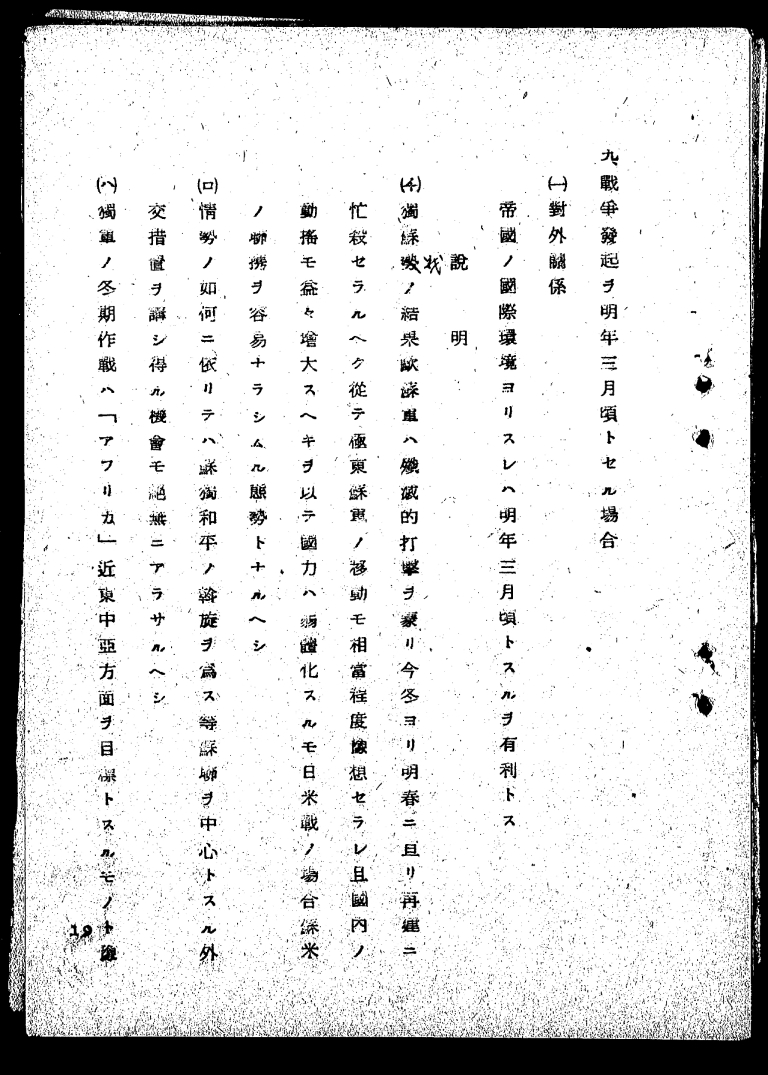 九、戰爭發起ヲ明年三月頃トセル場合
㈠對外關係
帝國ノ國際環境ヨリスレハ明年三月頃トスルヲ有利トス
說明
(イ)獨蘇勢ノ結果歐蘇軍ハ殲滅的打擊ヲ蒙リ今冬ヨリ明春ニ亘リ再建ニ
戰
忙殺セラルヘク從テ極東蘇軍ノ移動モ相當程度豫想セラレ且國內ノ
動搖モ益々增大スヘキヲ以テ國力ハ弱體化スルモ日米戰ノ場合蘇米
ノ聯携ヲ容易ナラシムル態勢トナルヘシ
(ロ)情勢ノ如何ニ依リテハ蘇獨和平ノ斡旋ヲ爲ス等蘇聯ヲ中心トスル外
交措置ヲ講シ得ル機會モ絕無ニアラサルヘシ
(ハ)獨軍ノ冬期作戰ハ「アフリカ」近東中亞方面ヲ目標トスルモノト豫
19